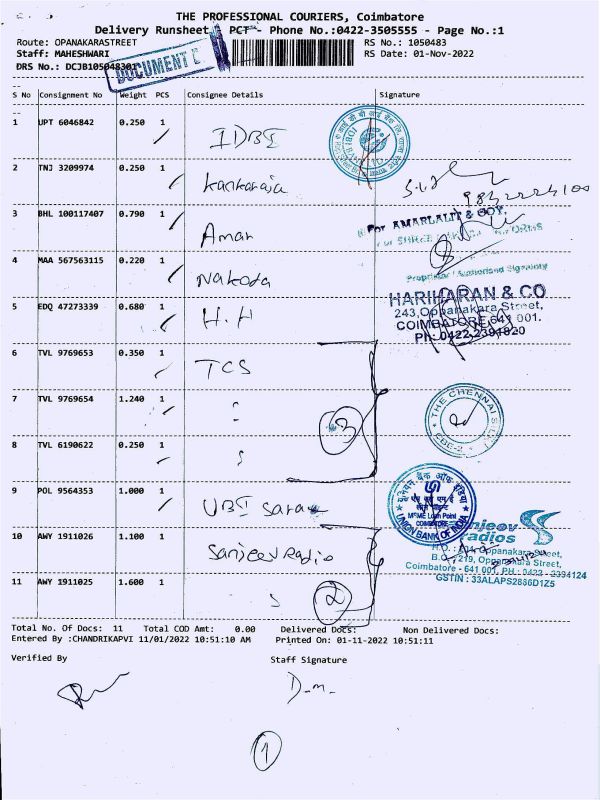 THE PROFESSIONAL COURIERS, Coimbatore
Delivery Runsheet PCT - Phone No.:0422-3505555 - Page No.:1
Route: OPANAKARASTREET RS No.: 1050483
Staff: MAHESHWARI RS Date: 01-Nov-2022
DRS No.: DCJB105048301
DOCUMENT
S No Consignment No Weight PCS Consignee Details Signature
1 UPT 6046842 0.250 1 IDBI
2 TNJ 3209974 0.250 1 Kankaraja
3 BHL 100117407 0.790 1 Aman
For AMARLALIT & COY.
4 MAA 567563115 0.220 1 Nakoda
Proprietor / Authorised Signatory
5 EDQ 47273339 0.680 1 H.H
HARIHARAN & CO
243,Oppanakara Street,
COIMBATORE-641 001.
Ph: 0422-2391820
6 TVL 9769653 0.350 1 TCS
7 TVL 9769654 1.240 1 "
3
THE CHENNAI SILKS
CBE-2
8 TVL 6190622 0.250 1 "
9 POL 9564353 1.000 1 UBI
यूनियन बैंक ऑफ इंडिया
MSME Loan Point
COIMBATORE
UNION BANK OF INDIA
10 AWY 1911026 1.100 1 Sanjeev Radio
Sanjeev Radios
Oppanakara Street,
B.O.: 219, Oppanakara Street,
Coimbatore - 641 001, PH.: 0422 - 2394124
GSTIN : 33ALAPS2886D1Z5
11 AWY 1911025 1.600 1 "
2
Total No. Of Docs: 11 Total COD Amt: 0.00 Delivered Docs: Non Delivered Docs:
Entered By :CHANDRIKAPVI 11/01/2022 10:51:10 AM Printed On: 01-11-2022 10:51:11
Verified By Staff Signature
D.m.
1